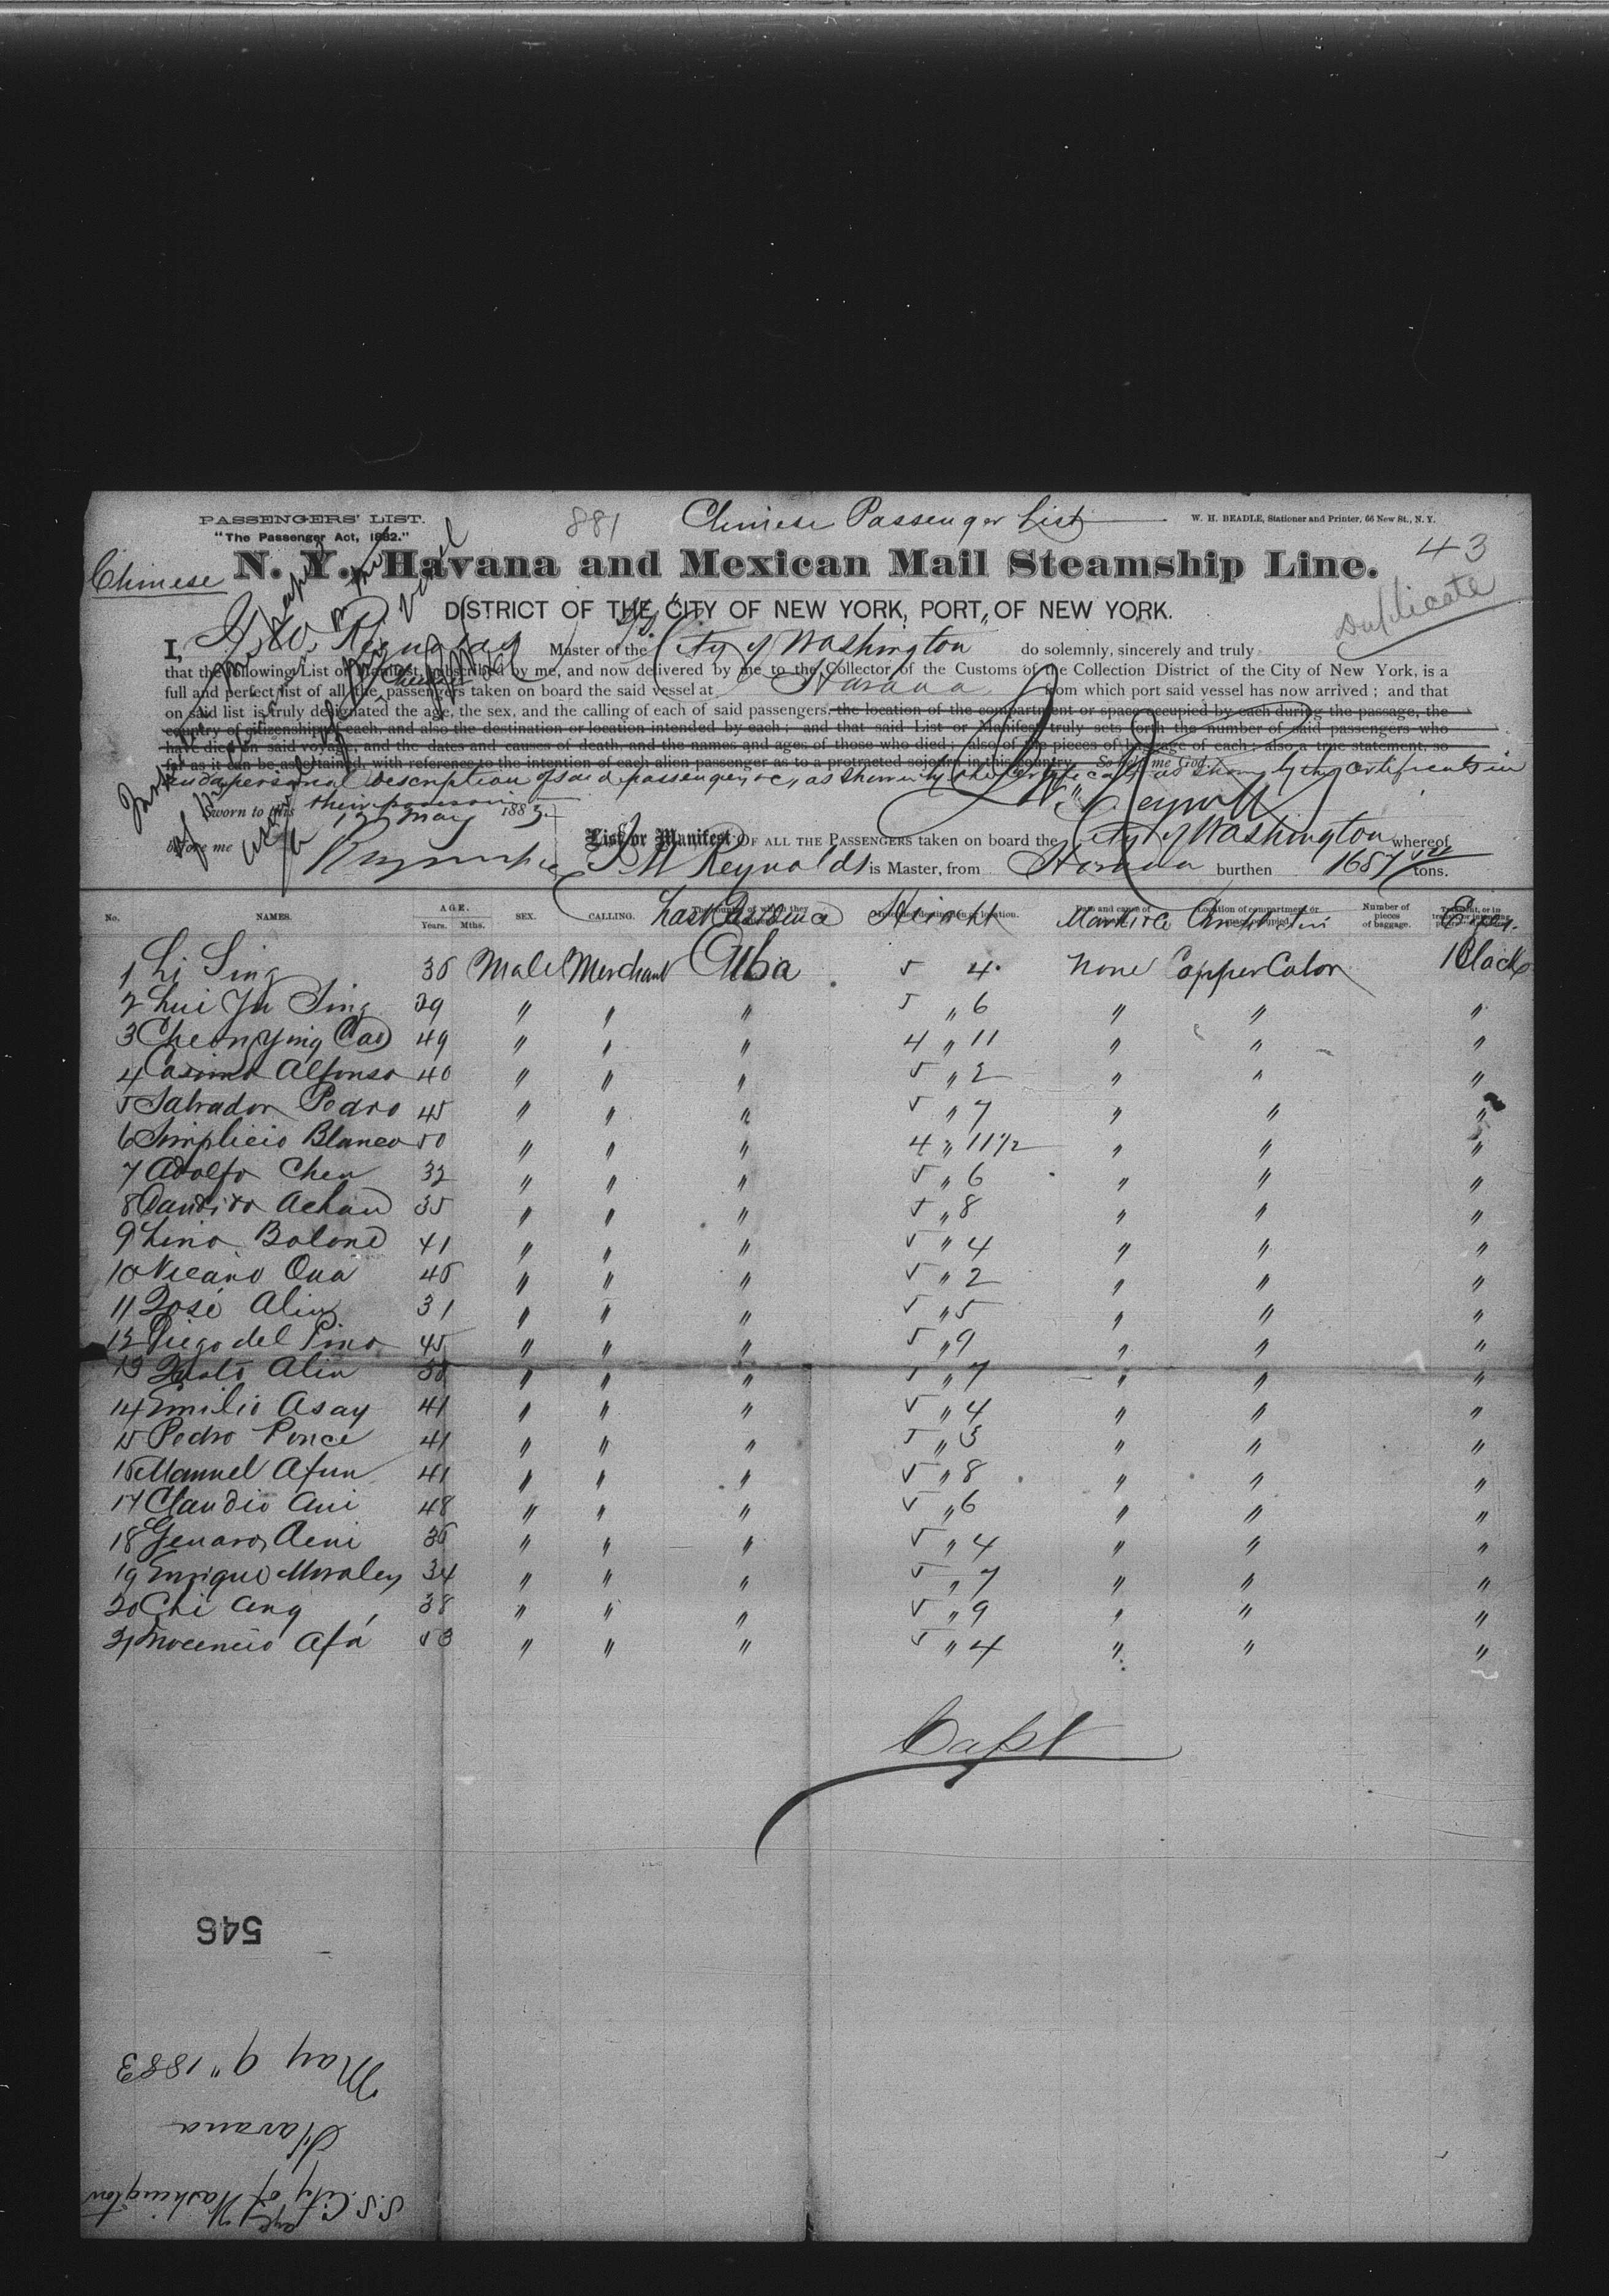 PASSENGERS' LIST.
"The Passenger Act, 1882."
881
Chinese Passenger List
W. H. BEADLE, Stationer and Printer, 66 New St., N. Y.
43
Chinese
N. Y., Havana and Mexican Mail Steamship Line.
Duplicate
DISTRICT OF THE CITY OF NEW YORK, PORT OF NEW YORK.
I, Reynolds Master of the City of Washington do solemnly, sincerely and truly
that the following List or Manifest, subscribed by me, and now delivered by me to the Collector of the Customs of the Collection District of the City of New York, is a
full and perfect list of all the passengers taken on board the said vessel at Havana from which port said vessel has now arrived; and that
on said list is truly designated the age, the sex, and the calling of each of said passengers, the location of the compartment or space occupied by each during the passage, the
country of citizenship of each, and also the destination or location intended by each; and that said List or Manifest truly sets forth the number of said passengers who
have died on said voyage, and the dates and causes of death, and the names and ages of those who died; also of the pieces of baggage of each; also a true statement, so
far as it can be ascertained, with reference to the intention of each alien passenger as to a protracted sojourn in this country. So help me God.
and a personal description of said passengers &c, as shown by the certificates in
their possession
Sworn to this 12 May 1883
before me
List or Manifest OF ALL THE PASSENGERS taken on board the City of Washington whereof
Reynolds is Master, from Havana burthen tons.
No. NAMES. AGE. Years. Mths. SEX. CALLING. Last Residence Height Marks &c Complexion Number of pieces of baggage. Eyes.
1 Li Sing 36 Male Merchant Cuba 5 4 None Copper Color Black
2 Lui Yu Sing 29 " " " 5 " 6 " " "
3 Cheon Ying Cao 49 " " " 4 " 11 " " "
4 Casimo Alfonso 40 " " " 5 " 2 " " "
5 Salvador Pedro 45 " " " 5 " 7 " " "
6 Simplicio Blanco 50 " " " 4 " 11 1/2 " " "
7 Adolfo Chen 32 " " " 5 " 6 " " "
8 Candido Achan 35 " " " 5 " 8 " " "
9 Lino Bolond 41 " " " 5 " 4 " " "
10 Nicano Qua 46 " " " 5 " 2 " " "
11 José Alin 31 " " " 5 " 5 " " "
12 Diego del Pino 45 " " " 5 " 9 " " "
13 Alin 38 " " " 5 " 7 " " "
14 Emilio Asay 41 " " " 5 " 4 " " "
15 Pedro Ponce 41 " " " 5 " 3 " " "
16 Manuel Afun 41 " " " 5 " 8 " " "
17 Claudio Ani 48 " " " 5 " 6 " " "
18 Genaro Aeni 36 " " " 5 " 4 " " "
19 Enrique Morales 34 " " " 5 " 7 " " "
20 Chi Ang 38 " " " 5 " 9 " " "
21 Inocencio Afá 53 " " " 5 " 4 " " "
Capt
546
May 9" 1883
Havana
S.S. City of Washington